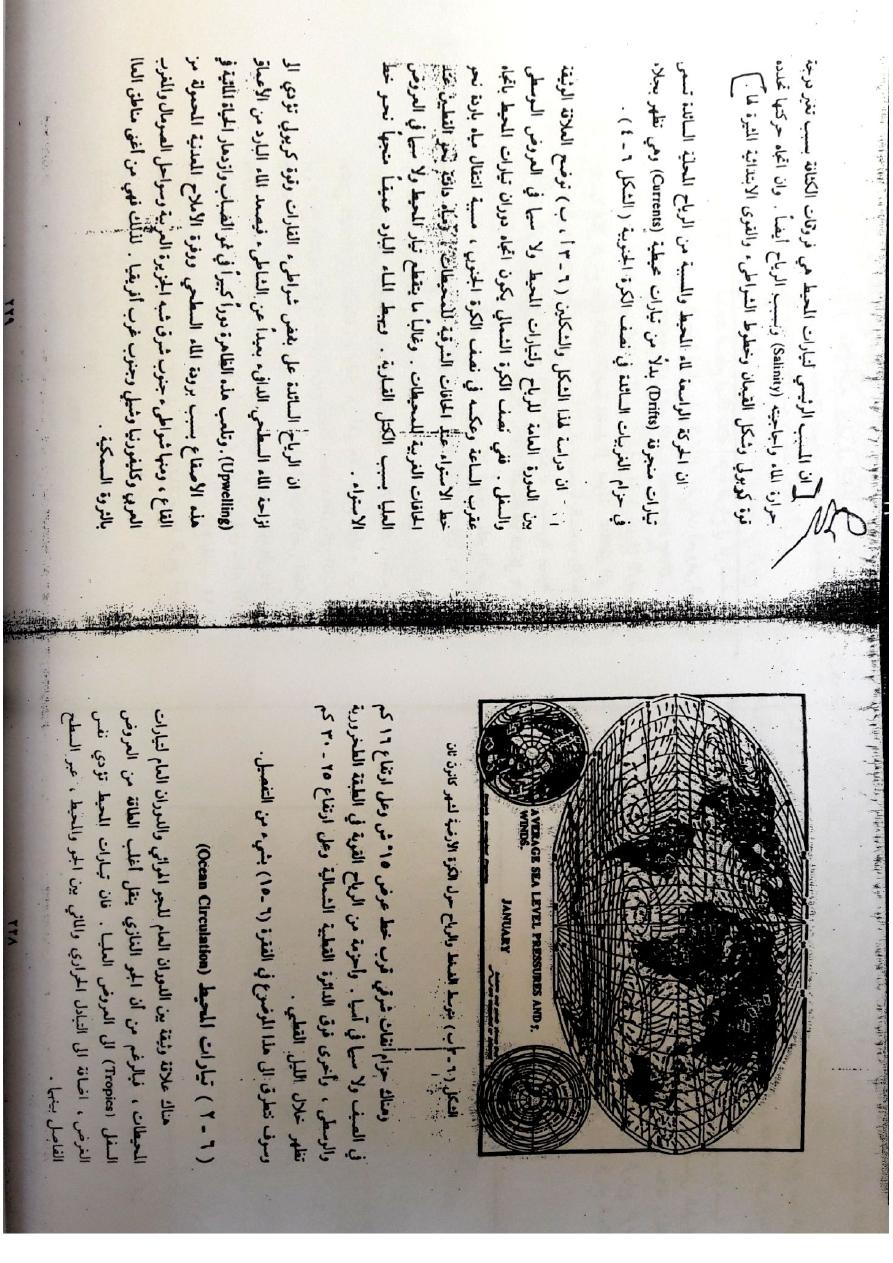 AVERAGE SEA LEVEL PRESSURES AND
WINDS.
JANUARY
الشكل (٦ - ٣ ب) متوسط الضغط والرياح حول الكرة الارضية لشهر كانون ثان
وهناك حزام نفاث شرقي قرب خط عرض ١٥° ش وعلى ارتفاع ١٦ كم
في الصيف ولا سيما في آسيا . وأحزمة من الرياح القوية في الطبقة الطخرورية
والوسطى ، وأخرى فوق الدائرة القطبية الشمالية وعلى ارتفاع ٢٥ - ٣٠ كم
تظهر خلال الليل القطبي .
وسوف نتطرق الى هذا الموضوع في الفقرة (٦ -١٥) بشيء من التفصيل.
( ٦ - ٢ ) تيارات المحيط (Ocean Circulation)
هناك علاقة وثيقة بين الدوران العام للجو الهوائي والدوران العام لتيارات
المحيطات ، فبالرغم من أن الجو الغازي ينقل أغلب الطاقة من العروض
السفلى (Tropics) الى العروض العليا . فان تيارات المحيط تؤدي نفس
الغرض ، اضافة الى التبادل الحراري والمائي بين الجو والمحيط ، عبر السطح
الفاصل بينهما .
٢٢٨
ان المسبب الرئيسي لتيارات المحيط هي فروقات الكثافة بسبب تغير درجة
حرارة الماء واجاجيته (Salinity) وبسبب الرياح أيضاً . وان اتجاه حركتها تحدده
قوة كوريولي وشكل القيعان وخطوط الشواطىء والقوى الابتدائية المثيرة لها .
ان الحركة الواسعة لماء المحيط والمسببة من الرياح المحلية السائدة تسمى
تيارات منجرفة (Drifts) بدلاً من تيارات محيطة (Currents) وهي تظهر بجلاء
في حزام الغربيات السائدة في نصف الكرة الجنوبية ( الشكل ٦ - ٤ ) .
ان دراسة لهذا الشكل والشكلين (٦ - ٣ أ ، ب) توضح العلاقة الوثيقة
بين الدورة العامة للرياح ولتيارات المحيط ولا سيما في العروض الوسطى
والسفلى . ففي نصف الكرة الشمالي يكون اتجاه دوران تيارات المحيط باتجاه
عقرب الساعة وعكسه في نصف الكرة الجنوبي ، مسببة انتقال مياه باردة نحو
خط الاستواء عند الحافات الشرقية للمحيطات ، ومياه دافئة نحو القطبين عند
الحافات الغربية للمحيطات . وغالباً ما يتقطع تيار المحيط ولا سيما في العروض
العليا بسبب الكتل القارية . ويهبط الماء البارد عميقاً متجهاً نحو خط
الاستواء .
ان الرياح السائدة على بعض شواطىء القارات وقوة كريولي تؤدي الى
ازاحة الماء السطحي الدافىء بعيداً عن الشاطىء فيصعد الماء البارد من الأعماق
(Upwelling) . وتلعب هذه الظاهرة دوراً كبيراً في نمو الضباب وازدهار الحياة المائية في
هذه الاصقاع بسبب برودة الماء السطحي ووفرة الأملاح المعدنية المحمولة من
القاع ، ومنها شواطىء جنوب شرق شبه الجزيرة العربية وسواحل الصومال والمغرب
العربي وكاليفورنيا وشيلي وجنوب غرب أفريقيا . لذلك فهي من أغنى مناطق العالم
بالثروة السمكية .
٢٢٩